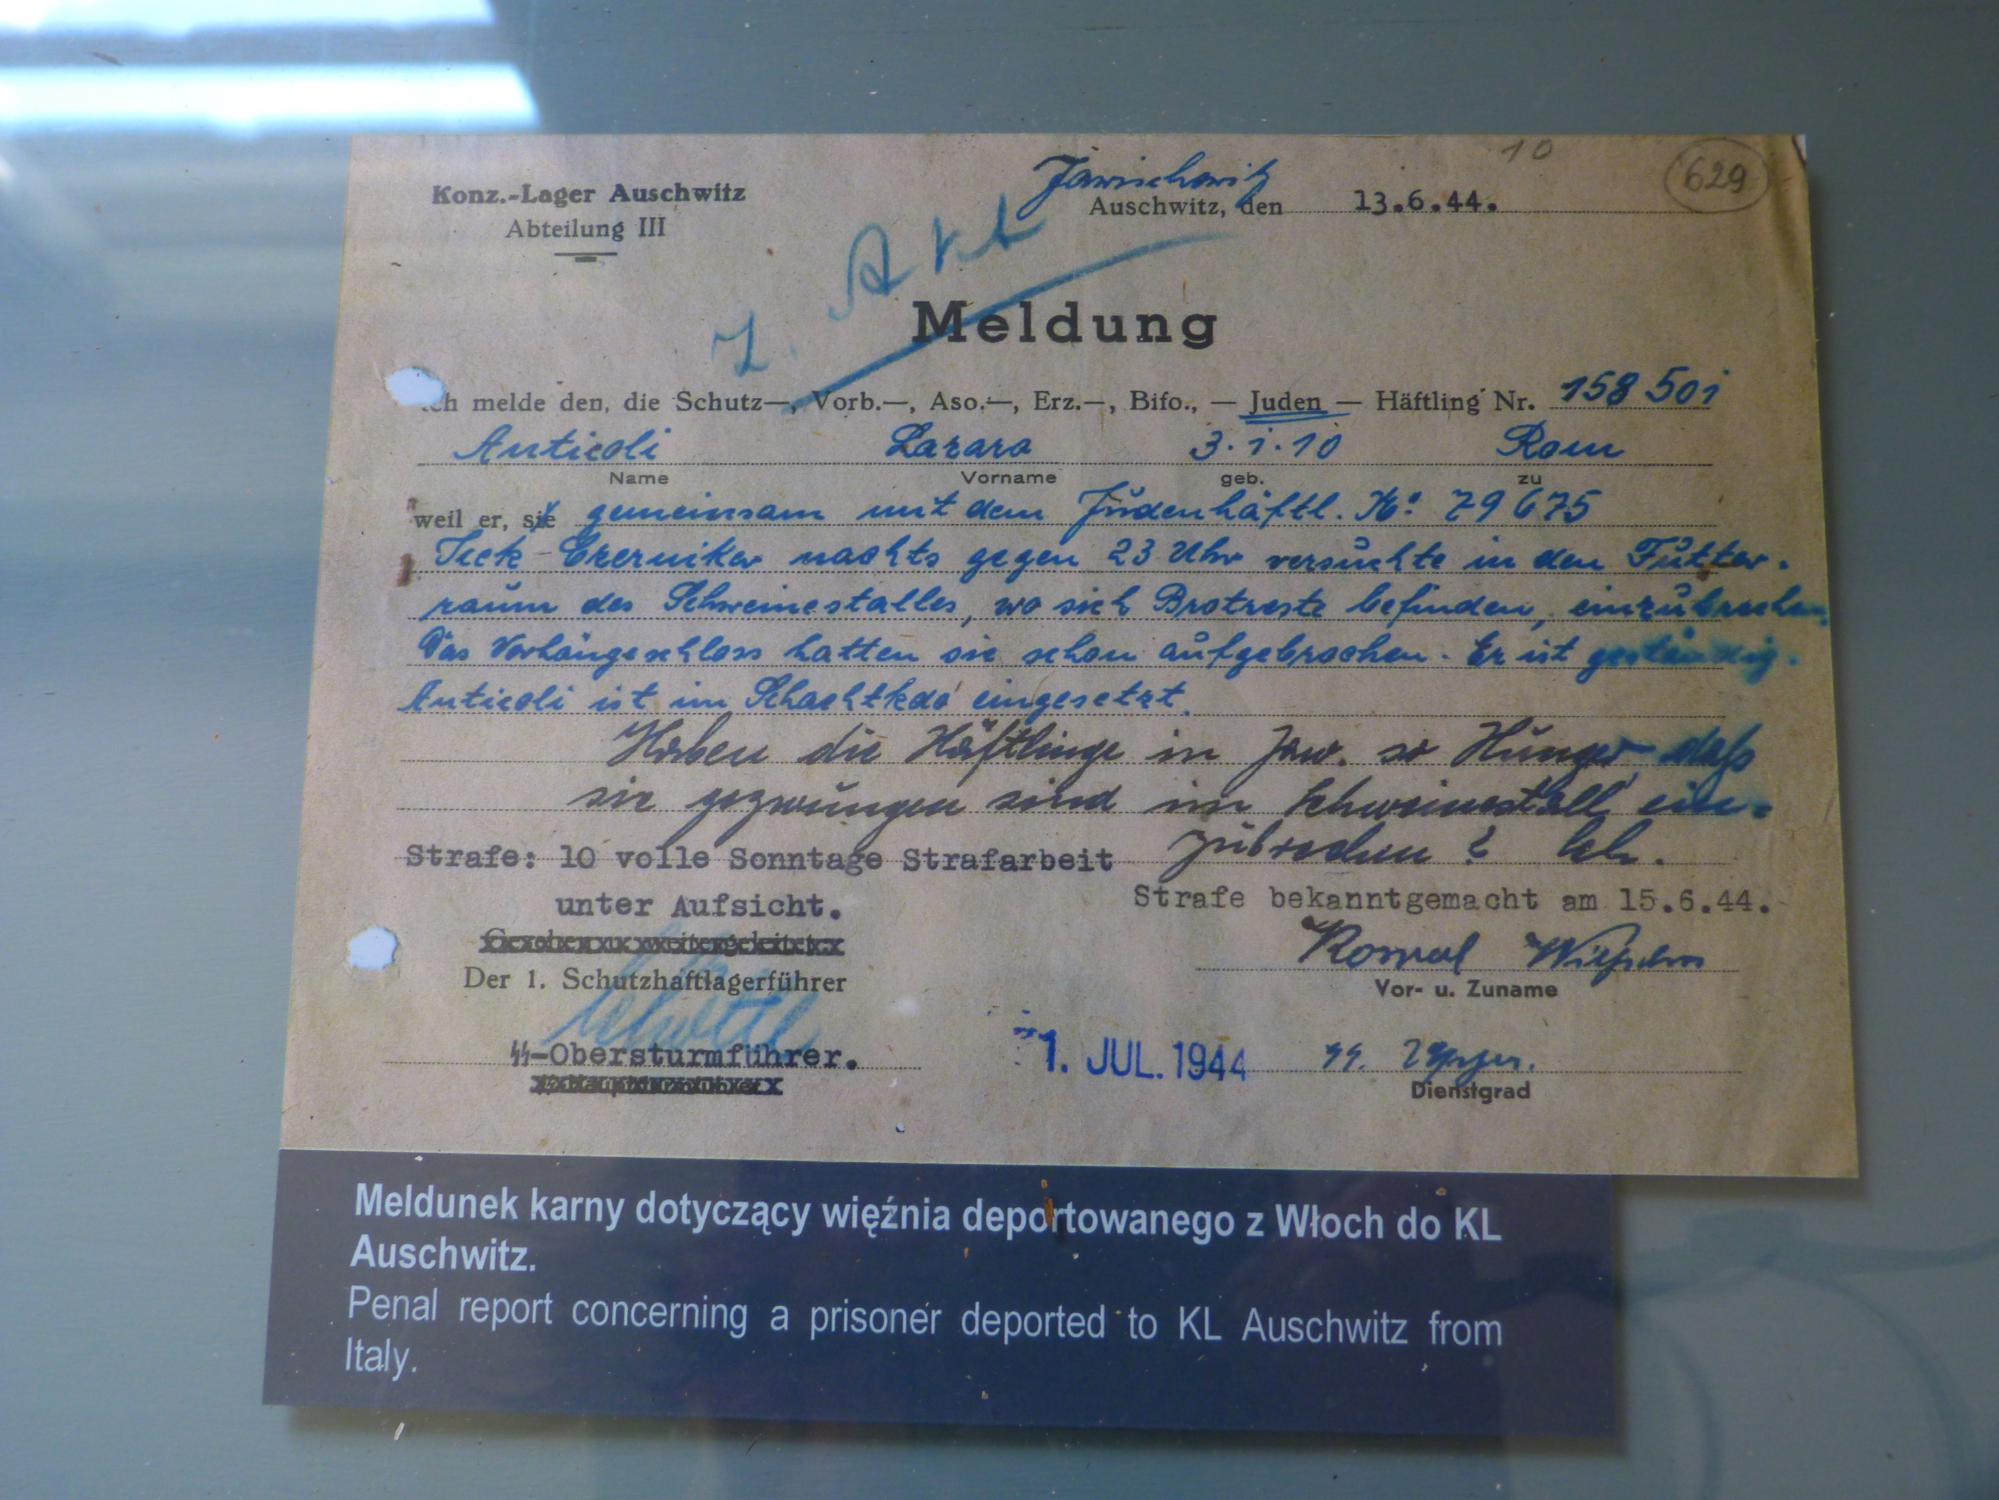 10
629
Konz.-Lager Auschwitz
Jawischowitz
Abteilung III
Auschwitz, den 13.6.44.
z. Akt
Meldung
Ich melde den, die Schutz—, Vorb.—, Aso.—, Erz.—, Bifo., — Juden — Häftling Nr. 158501
Anticoli Lazaro 3.1.10 Rom
Name Vorname geb. zu
weil er, sie gemeinsam mit dem Judenhäftl. No: 79675
nachts gegen 23 Uhr versuchte in den Futter-
raum des Schweinestalles, wo sich Brotreste befinden, einzubrechen.
Das Vorhängeschloss hatten sie schon aufgebrochen. Er ist geständig.
Anticoli ist im Schachtkdo eingesetzt.
Haben die Häftlinge in Jaw. so Hunger daß
sie gezwungen sind im Schweinestall ein-
zubrechen?
Strafe: 10 volle Sonntage Strafarbeit
unter Aufsicht.
Strafe bekanntgemacht am 15.6.44.
Der 1. Schutzhaftlagerführer
Wilhelm
Vor- u. Zuname
SS-Obersturmführer.
1. JUL. 1944
SS.
Dienstgrad
Meldunek karny dotyczący więźnia deportowanego z Włoch do KL
Auschwitz.
Penal report concerning a prisoner deported to KL Auschwitz from
Italy.